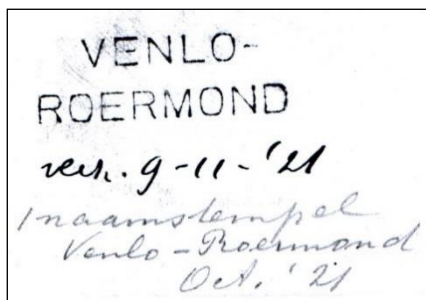 VENLO-
ROERMOND
verz. 9-11-'21
1 naamstempel
Venlo-Roermond
Oct. '21